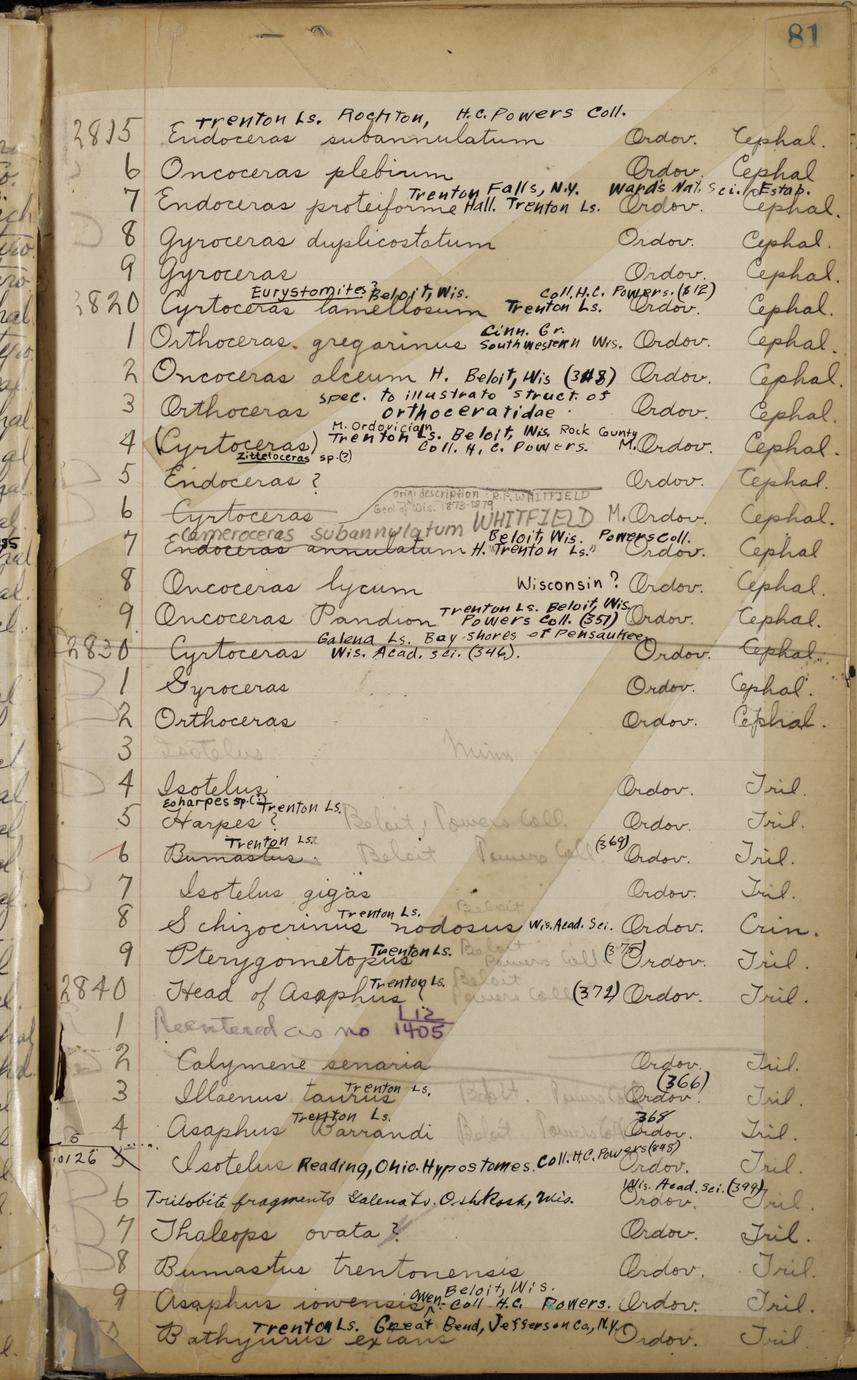 81
Trenton Ls. Rockton, H.C. Powers Coll.
2815 Endoceras subannulatum Ordov. Cephal.
6 Oncoceras plebium Ordov. Cephal
Trenton Falls, N.Y. Ward's Nat. Sci. Estab.
7 Endoceras proteiforme Hall. Trenton Ls. Ordov. Cephal.
8 Gyroceras duplicostatum Ordov. Cephal.
9 Gyroceras Ordov. Cephal.
Eurystomites? Beloit, Wis. Coll. H.C. Powers. (312)
2820 Cyrtoceras lamellosum Trenton Ls. Ordov. Cephal.
Cinn. Gr.
1 Orthoceras gregarinus Southwestern Wis. Ordov. Cephal.
2 Oncoceras alceum H. Beloit, Wis (348) Ordov. Cephal.
spec. to illustrate struct of
3 Orthoceras orthoceratidae. Ordov. Cephal.
M. Ordovician
Trenton Ls. Beloit, Wis. Rock County
4 (Cyrtoceras) Coll. H. C. Powers. M. Ordov. Cephal.
Zitteloceras sp.(?)
5 Endoceras? Ordov. Cephal.
orig. description: R.P. WHITFIELD
Geol of Wis. 1873-1879
6 Cyrtoceras M. Ordov. Cephal.
Cameroceras subannulatum WHITFIELD
Beloit, Wis. Powers Coll.
7 Endoceras annulatum H. "Trenton Ls." Ordov. Cephal
8 Oncoceras lycum Wisconsin? Ordov. Cephal.
Trenton Ls. Beloit, Wis.
9 Oncoceras Pandion Powers Coll. (351) Ordov. Cephal.
Galena Ls. Bay shores of Pensaukee
2830 Cyrtoceras Wis. Acad. Sci. (346). Ordov. Cephal.
1 Gyroceras Ordov. Cephal.
2 Orthoceras Ordov. Cephal.
3 Isotelus Minn
4 Isotelus Ordov. Tril.
Eoharpes sp.(?) Trenton Ls.
5 Harpes? Beloit, Powers Coll. Ordov. Tril.
Trenton Ls.
6 Bumastus. Beloit Powers Coll (369) Ordov. Tril.
7 Isotelus gigas Ordov. Tril.
Trenton Ls. Beloit
8 Schizocrinus nodosus Wis. Acad. Sci. Ordov. Crin.
Trenton Ls. Beloit
9 Pterygometopus Powers Coll (375) Ordov. Tril.
Trenton Ls. Beloit
2840 Head of Asaphus Powers Coll (372) Ordov. Tril.
1 Reentered as no L12 1405
2 Calymene senaria Ordov. Tril.
Trenton Ls. (366)
3 Illaenus taurus Beloit. Powers Coll Ordov. Tril.
Trenton Ls. 368
4 Asaphus Barrandi Beloit. Powers Coll Ordov. Tril.
10126 5 Isotelus Reading, Ohio. Hypostomes. Coll. H.C. Powers (448) Ordov. Tril.
Wis. Acad. Sci. (399)
6 Trilobite fragments Galena Ls. Oshkosh, Wis. Ordov. Tril.
7 Thaleops ovata? Ordov. Tril.
8 Bumastus trentonensis Ordov. Tril.
Owen. Beloit, Wis.
9 Asaphus iowensis Coll. H.C. Powers. Ordov. Tril.
Trenton Ls. Great Bend, Jefferson Co, N.Y.
0 Bathyurus extans Ordov. Tril.